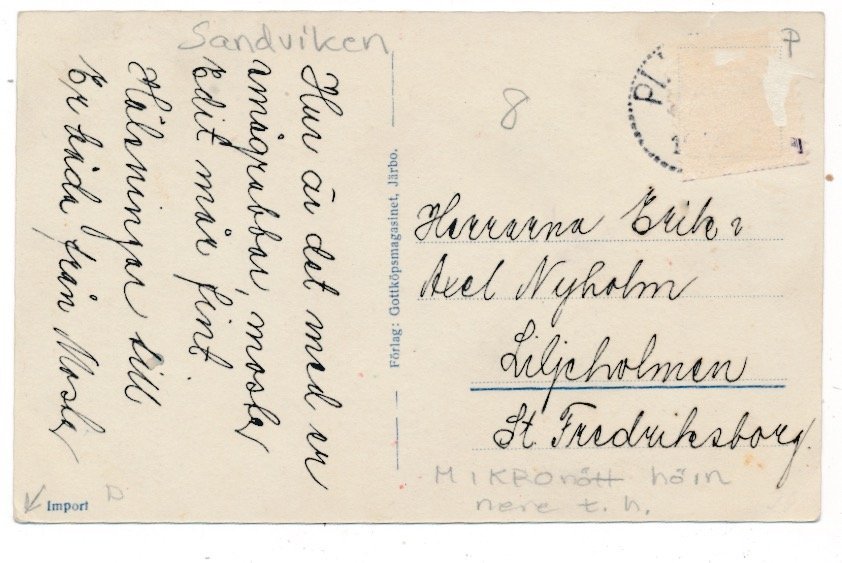 Sandviken
Hur är det med er
smågrabbar, moster
Edit mår fint.
Hälsningar till
Er båda från Moster
Förlag: Gottköpsmagasinet, Järbo.
Import
D
8
P
PI
Herrarna Erik &
Axel Nyholm
Liljeholmen
St Fredriksborg.
MIKROnött hörn
nere t. h.